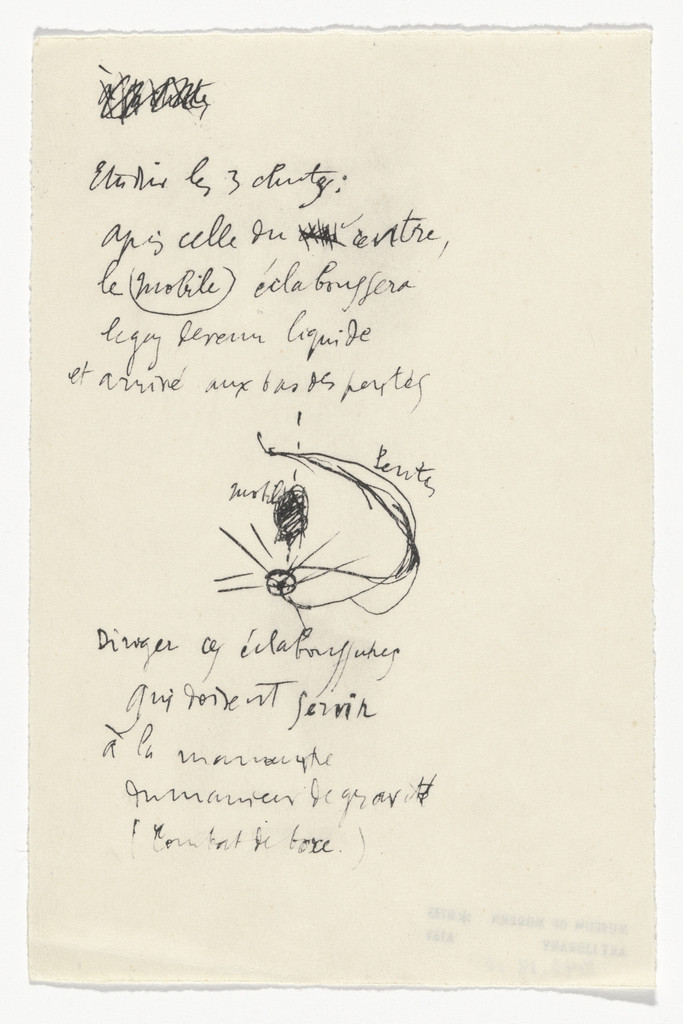 Etudier les 3 chutes:
après celle du centre,
le (mobile) éclaboussera
le gaz devenu liquide
et arrivé aux bas des pentes
Pentes
mobile
Diriger ces éclaboussures
qui doivent servir
à la manœuvre
du manieur de gravité
(Combat de boxe.)
MUSEUM OF MODERN
ART LIBRARY